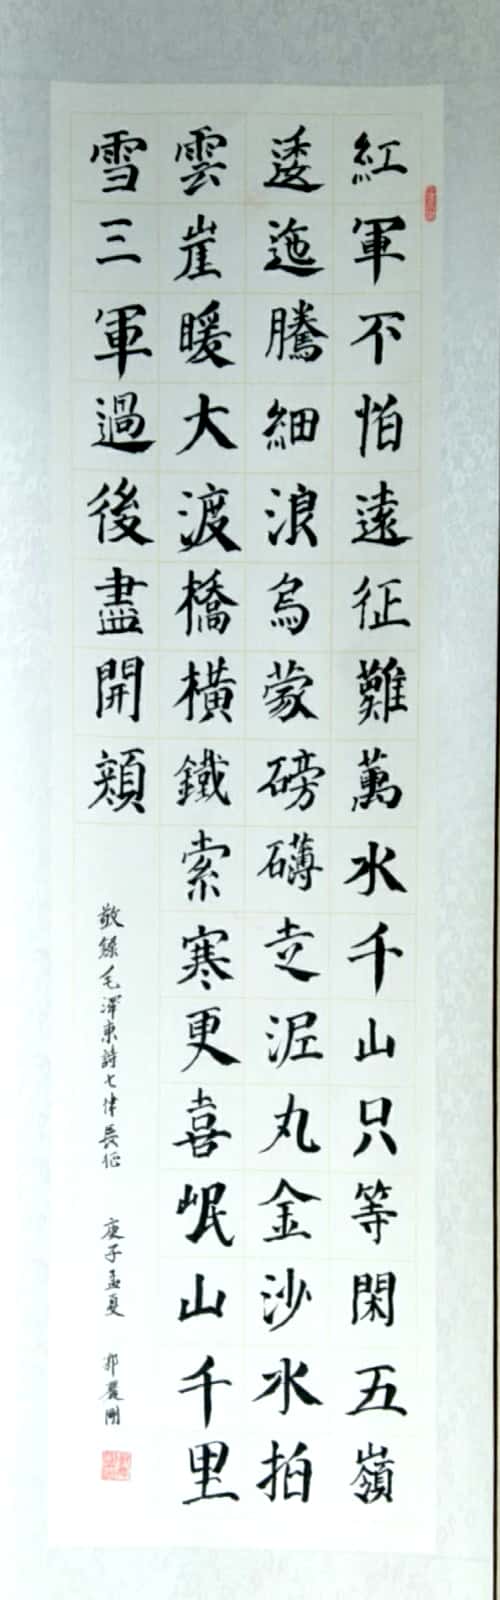 紅軍不怕遠征難萬水千山只等閑五嶺
逶迤騰細浪烏蒙磅礴走泥丸金沙水拍
雲崖暖大渡橋橫鐵索寒更喜岷山千里
雪三軍過後盡開顏
敬錄毛澤東詩七律長征 庚子孟夏 郭麗剛